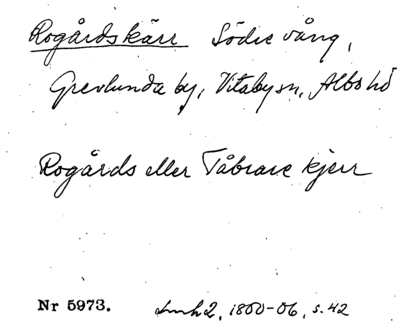 Rogårdskärr Södre vång,
Grevlunda by, Vitaby sn, Albo hd
Rogårds eller Tåbrare kjerr
Nr 5973. Lmh2, 1800-06, s. 42